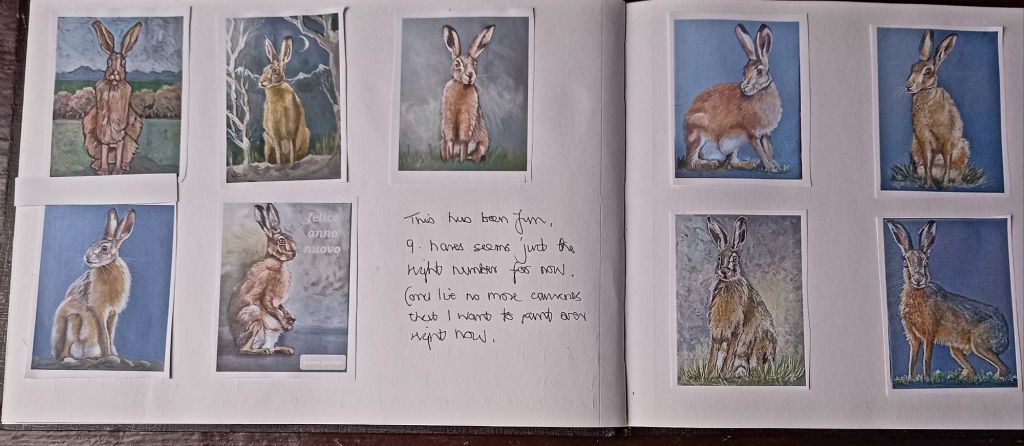 felice
anno
nuovo
This has been fun,
9. hares seems just the
right number for now.
(and
no more canvases
that I want to paint over
right now.